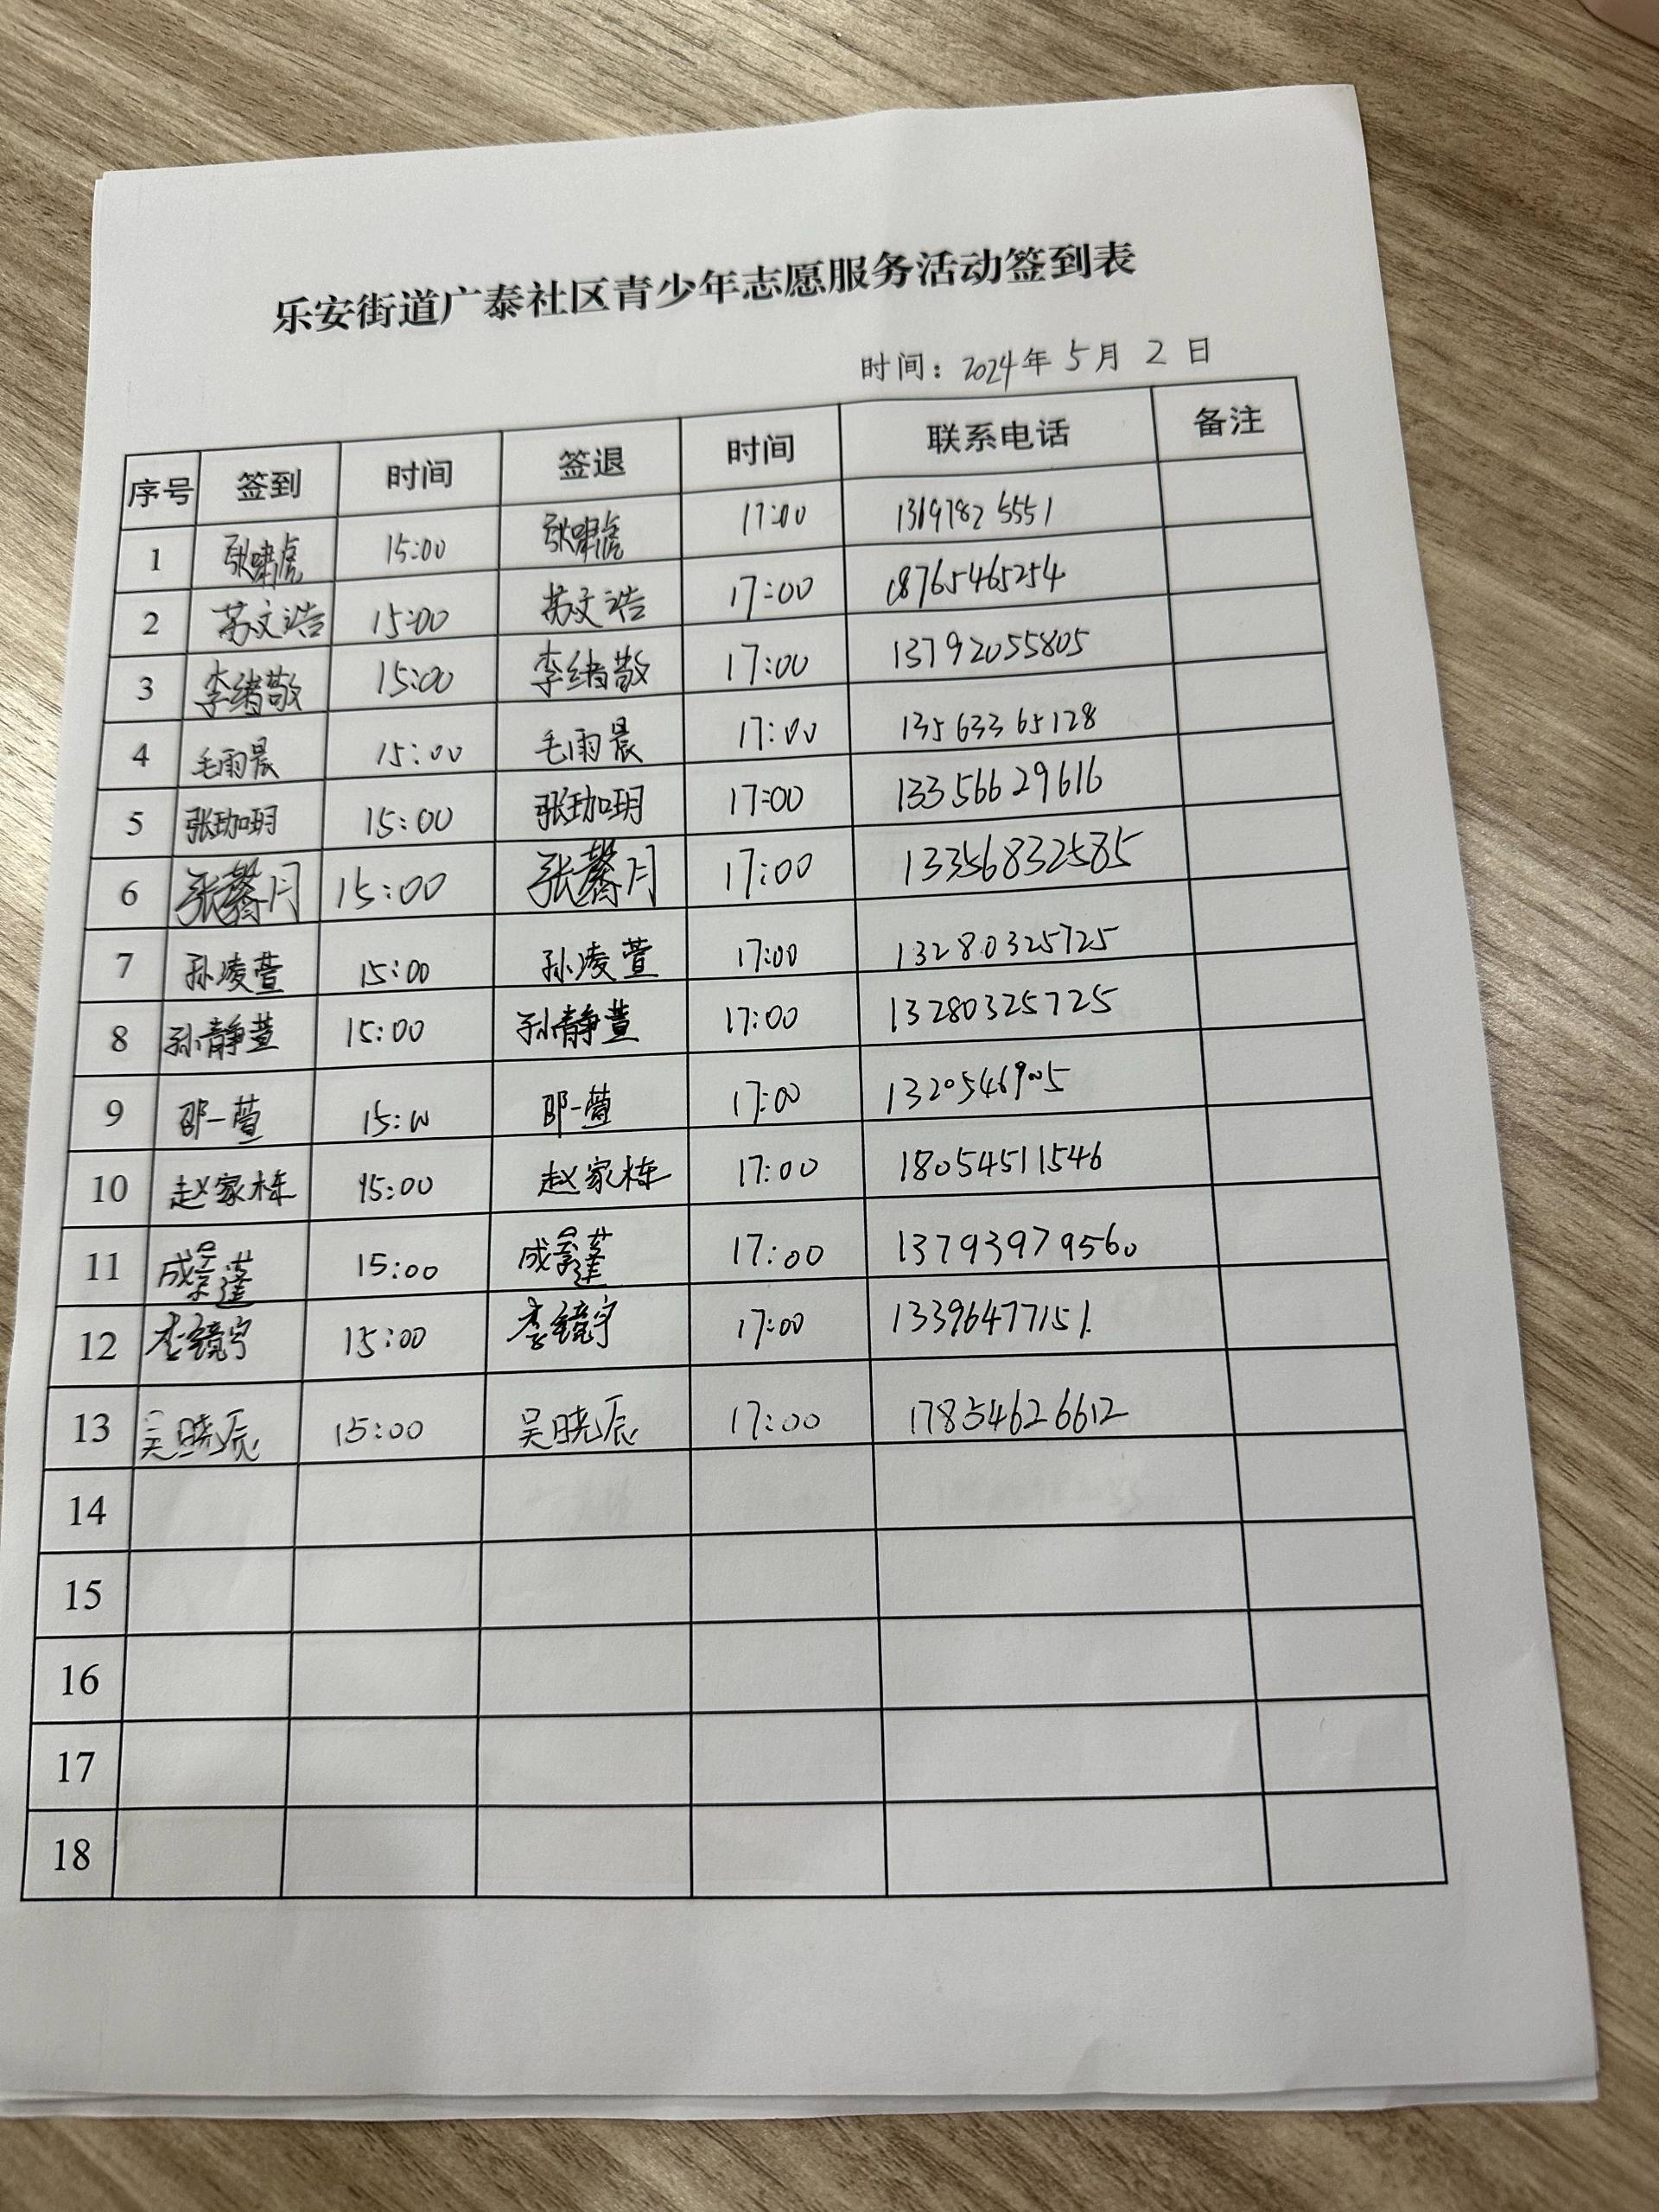 乐安街道广泰社区青少年志愿服务活动签到表
时间：2024年 5月 2 日
序号 签到 时间 签退 时间 联系电话 备注
1 张啸虎 15:00 张啸虎 17:00 13197825551
2 苏文浩 15:00 苏文浩 17:00 18765465254
3 李绪敬 15:00 李绪敬 17:00 13792055805
4 毛雨晨 15:00 毛雨晨 17:00 13563365128
5 张珈玥 15:00 张珈玥 17:00 13356629616
6 张馨月 15:00 张馨月 17:00 13356832585
7 孙凌萱 15:00 孙凌萱 17:00 13280325725
8 孙静萱 15:00 孙静萱 17:00 13280325725
9 邵一萱 15:00 邵一萱 17:00
10 赵家栋 15:00 赵家栋 17:00 18054511546
11 成景莲 15:00 成景莲 17:00 13793979560
12 李镜宇 15:00 李镜宇 17:00 13396477151
13 吴晓辰 15:00 吴晓辰 17:00 17854626612
14
15
16
17
18